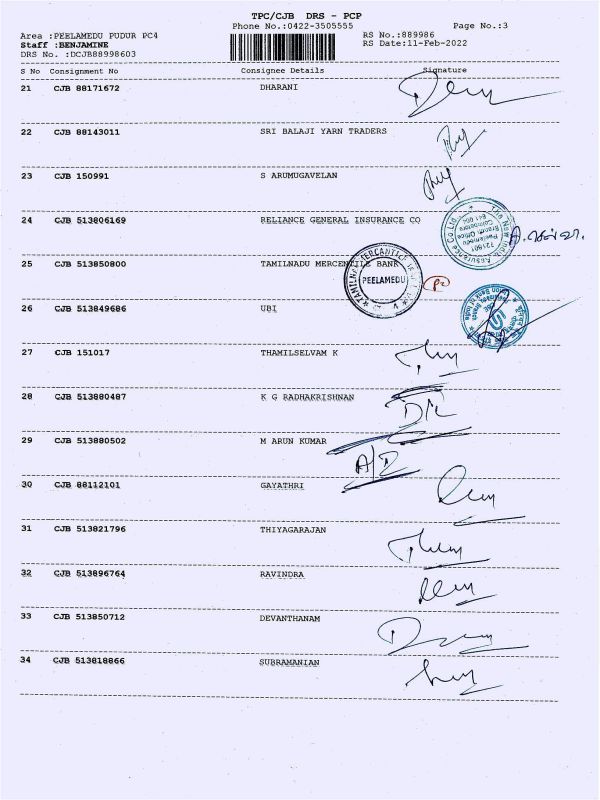 TPC/CJB DRS - PCP
Phone No.:0422-3505555 Page No.:3
Area :PEELAMEDU PUDUR PC4 RS No.:889986
Staff :BENJAMINE RS Date:11-Feb-2022
DRS No. :DCJB88998603
S No Consignment No Consignee Details Signature
21 CJB 88171672 DHARANI
22 CJB 88143011 SRI BALAJI YARN TRADERS
23 CJB 150991 S ARUMUGAVELAN
24 CJB 513806169 RELIANCE GENERAL INSURANCE CO
The New India Assurance Co Ltd
721601
Peelamedu
Branch Office
Coimbatore
641 004
25 CJB 513850800 TAMILNADU MERCENTILE BANK
TAMILNAD MERCANTILE
PEELAMEDU
26 CJB 513849686 UBI
27 CJB 151017 THAMILSELVAM K
28 CJB 513880487 K G RADHAKRISHNAN
D/L
29 CJB 513880502 M ARUN KUMAR
A/2
30 CJB 88112101 GAYATHRI
31 CJB 513821796 THIYAGARAJAN
32 CJB 513896764 RAVINDRA
33 CJB 513850712 DEVANTHANAM
34 CJB 513818866 SUBRAMANIAN